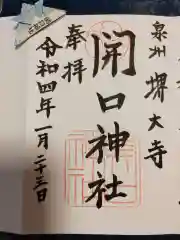 泉州堺大寺
奉拝
開口神社
令和四年一月二十三日